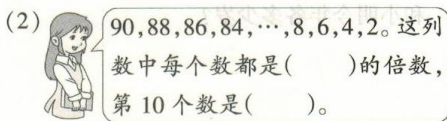 (2) 90,88,86,84,…,8,6,4,2。这列
数中每个数都是(　　)的倍数,
第 10 个数是(　　)。